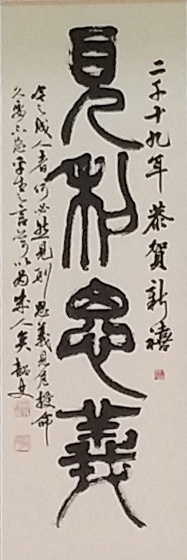 二千十九年 恭賀新禧
見利思義
今之成人者何必然見利思義見危授命
久要不忘平生之言亦可以為成人矣